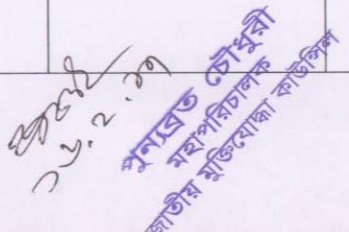 ১৮.২.১৭
পুণ্যব্রত চৌধুরী
মহাপরিচালক
জাতীয় মুক্তিযোদ্ধা কাউন্সিল